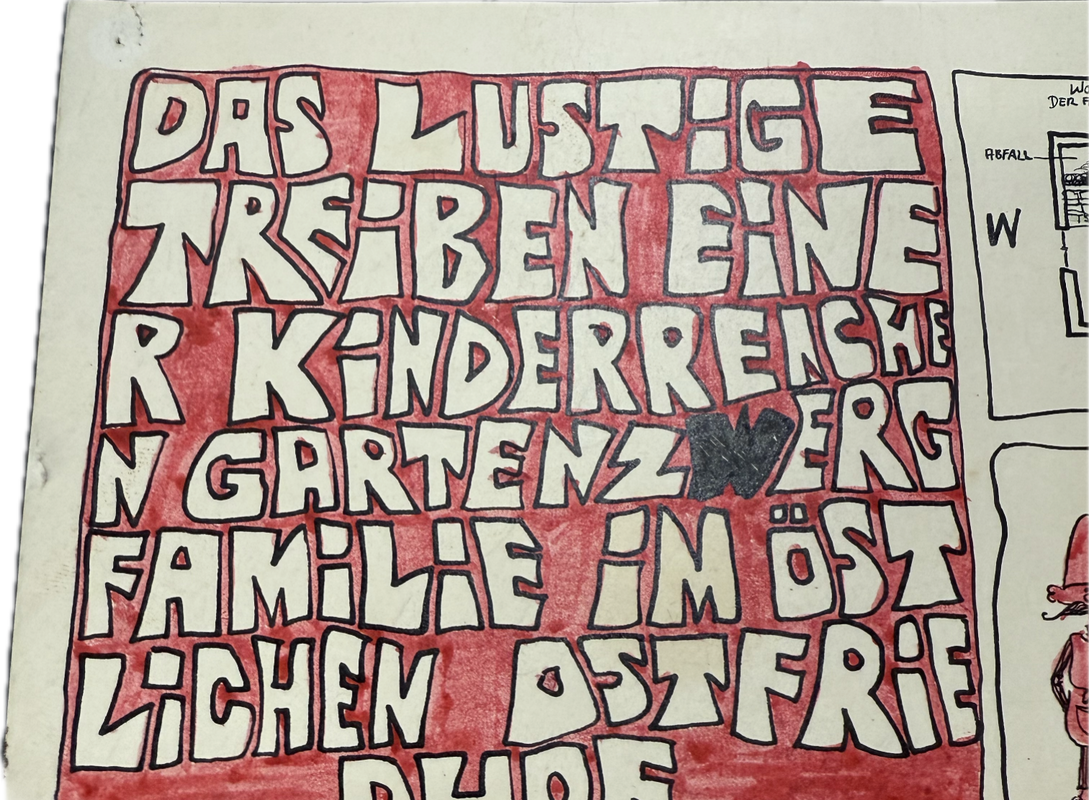 DAS LUSTIGE
TREIBEN EINE
R KINDERREICHE
N GARTENZWERG
FAMILIE IM ÖST
LICHEN OSTFRIE
ABFALL
W